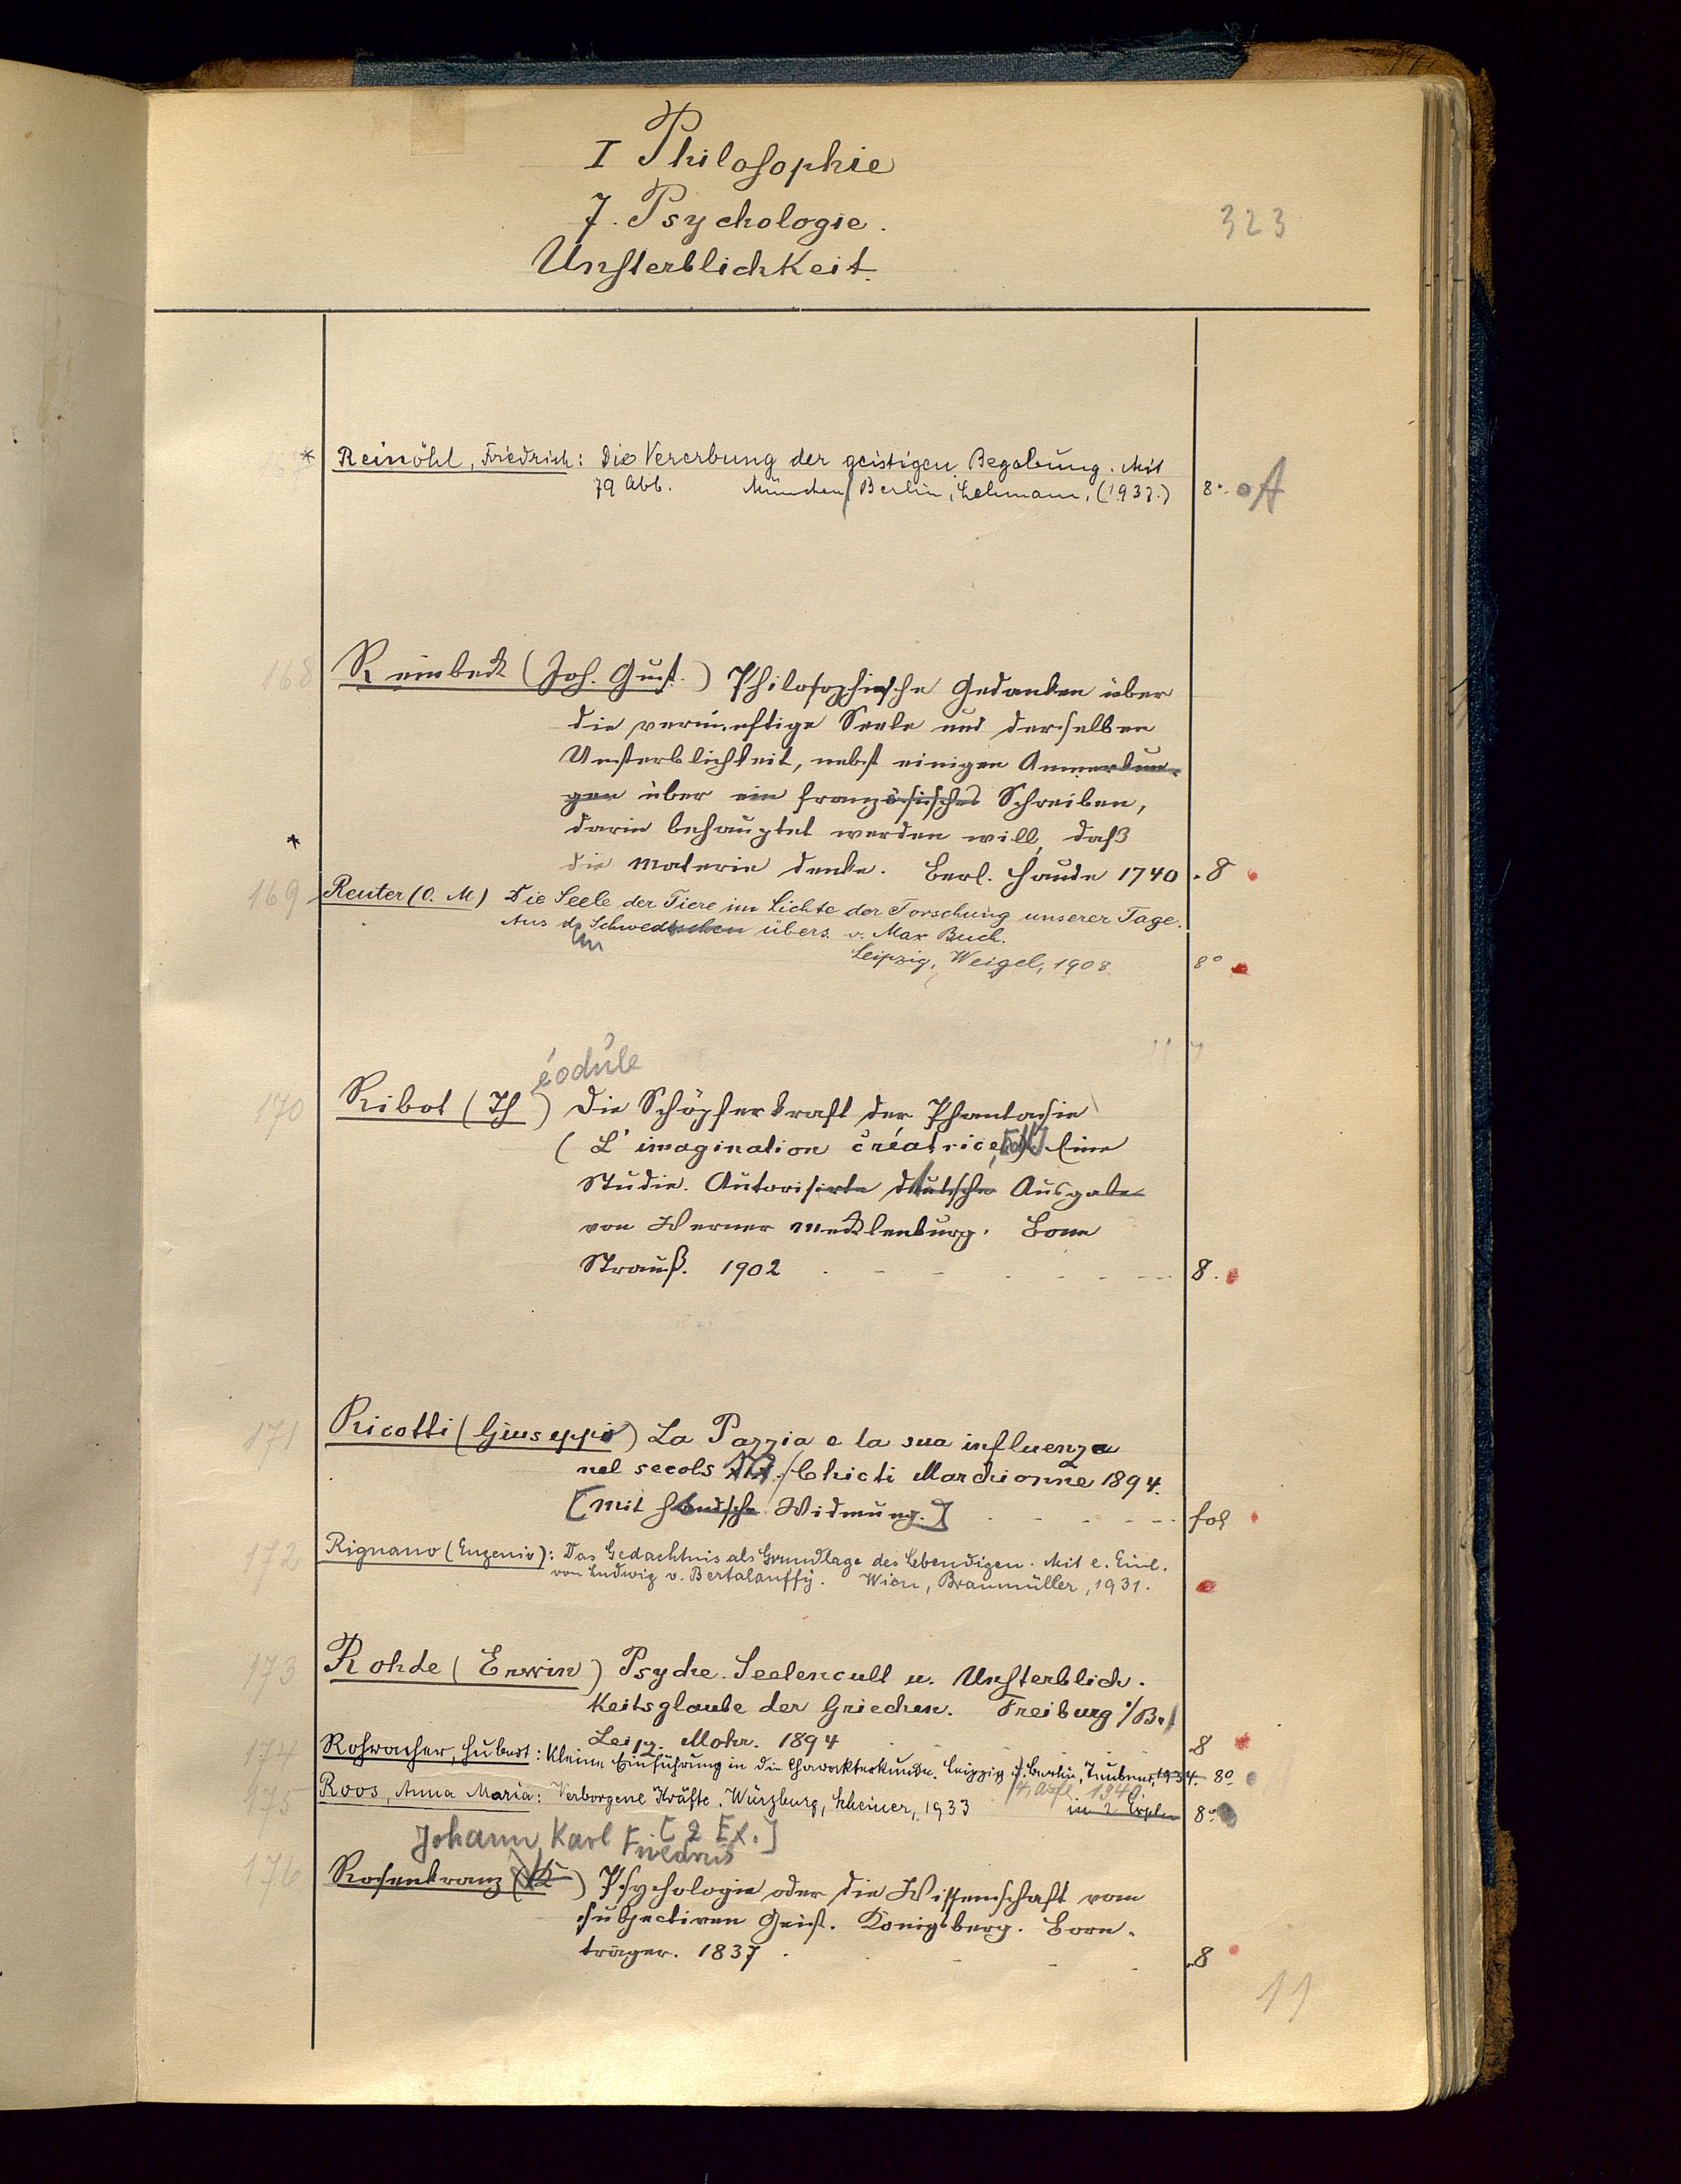 I Philosophie
7. Psychologie.
323
Unsterblichkeit.
* Reinöhl, Friedrich: Die Vererbung der geistigen Begabung. Mit
79 Abb. München/Berlin, Lehmann, (1937.) 8°. A
168 Reinbeck (Joh. Gust.) Philosophische Gedanken über
die vernünftige Seele und derselben
Unsterblichkeit, nebst einigen Anmerkun-
gen über ein französisches Schreiben,
darin behauptet werden will, daß
*
die Materie denke. Berl. Haude 1740 . 8
169 Reuter (O. M) Die Seele der Tiere im Lichte der Forschung unserer Tage.
Aus d. Schwedischen übers. v. Max Buch.
Leipzig, Weigel, 1908. 8°
éodule
170 Ribot (Th ) Die Schöpferkraft der Phantasie
(L'imagination créatrice) Eine
Studie. Autorisirte deutsche Ausgabe
von Werner Mecklenburg. Bonn
Strauß. 1902 8.
171 Ricotti (Giuseppe) La Pazzia e la sua influenza
nel secolo XIX. / Chieti Marchionne 1894.
[mit handsch. Widmung.] fol
172 Rignano (Eugenio): Das Gedächtnis als Grundlage des Lebendigen. Mit e. Einl.
von Ludwig v. Bertalanffy. Wien, Braumüller, 1931.
173 Rohde (Erwin) Psyche. Seelencult u. Unsterblich-
keitsglaube der Griechen. Freiburg i/B.
Leipz. Mohr. 1894 8
174 Rohracher, Hubert: Kleine Einführung in die Charakterkunde. Leipzig u. Berlin, Teubner, 1934. 8°
4. Aufl. 1940.
175 Roos, Anna Maria: Verborgene Kräfte. Würzburg, Rheiner, 1933 in 2 Expln 8°
Johann Karl Friedrich [2 Ex.]
176 Rosenkranz (K ) Psychologie oder die Wissenschaft vom
subjectiven Geist. Königsberg. Born-
träger. 1837. 8
11